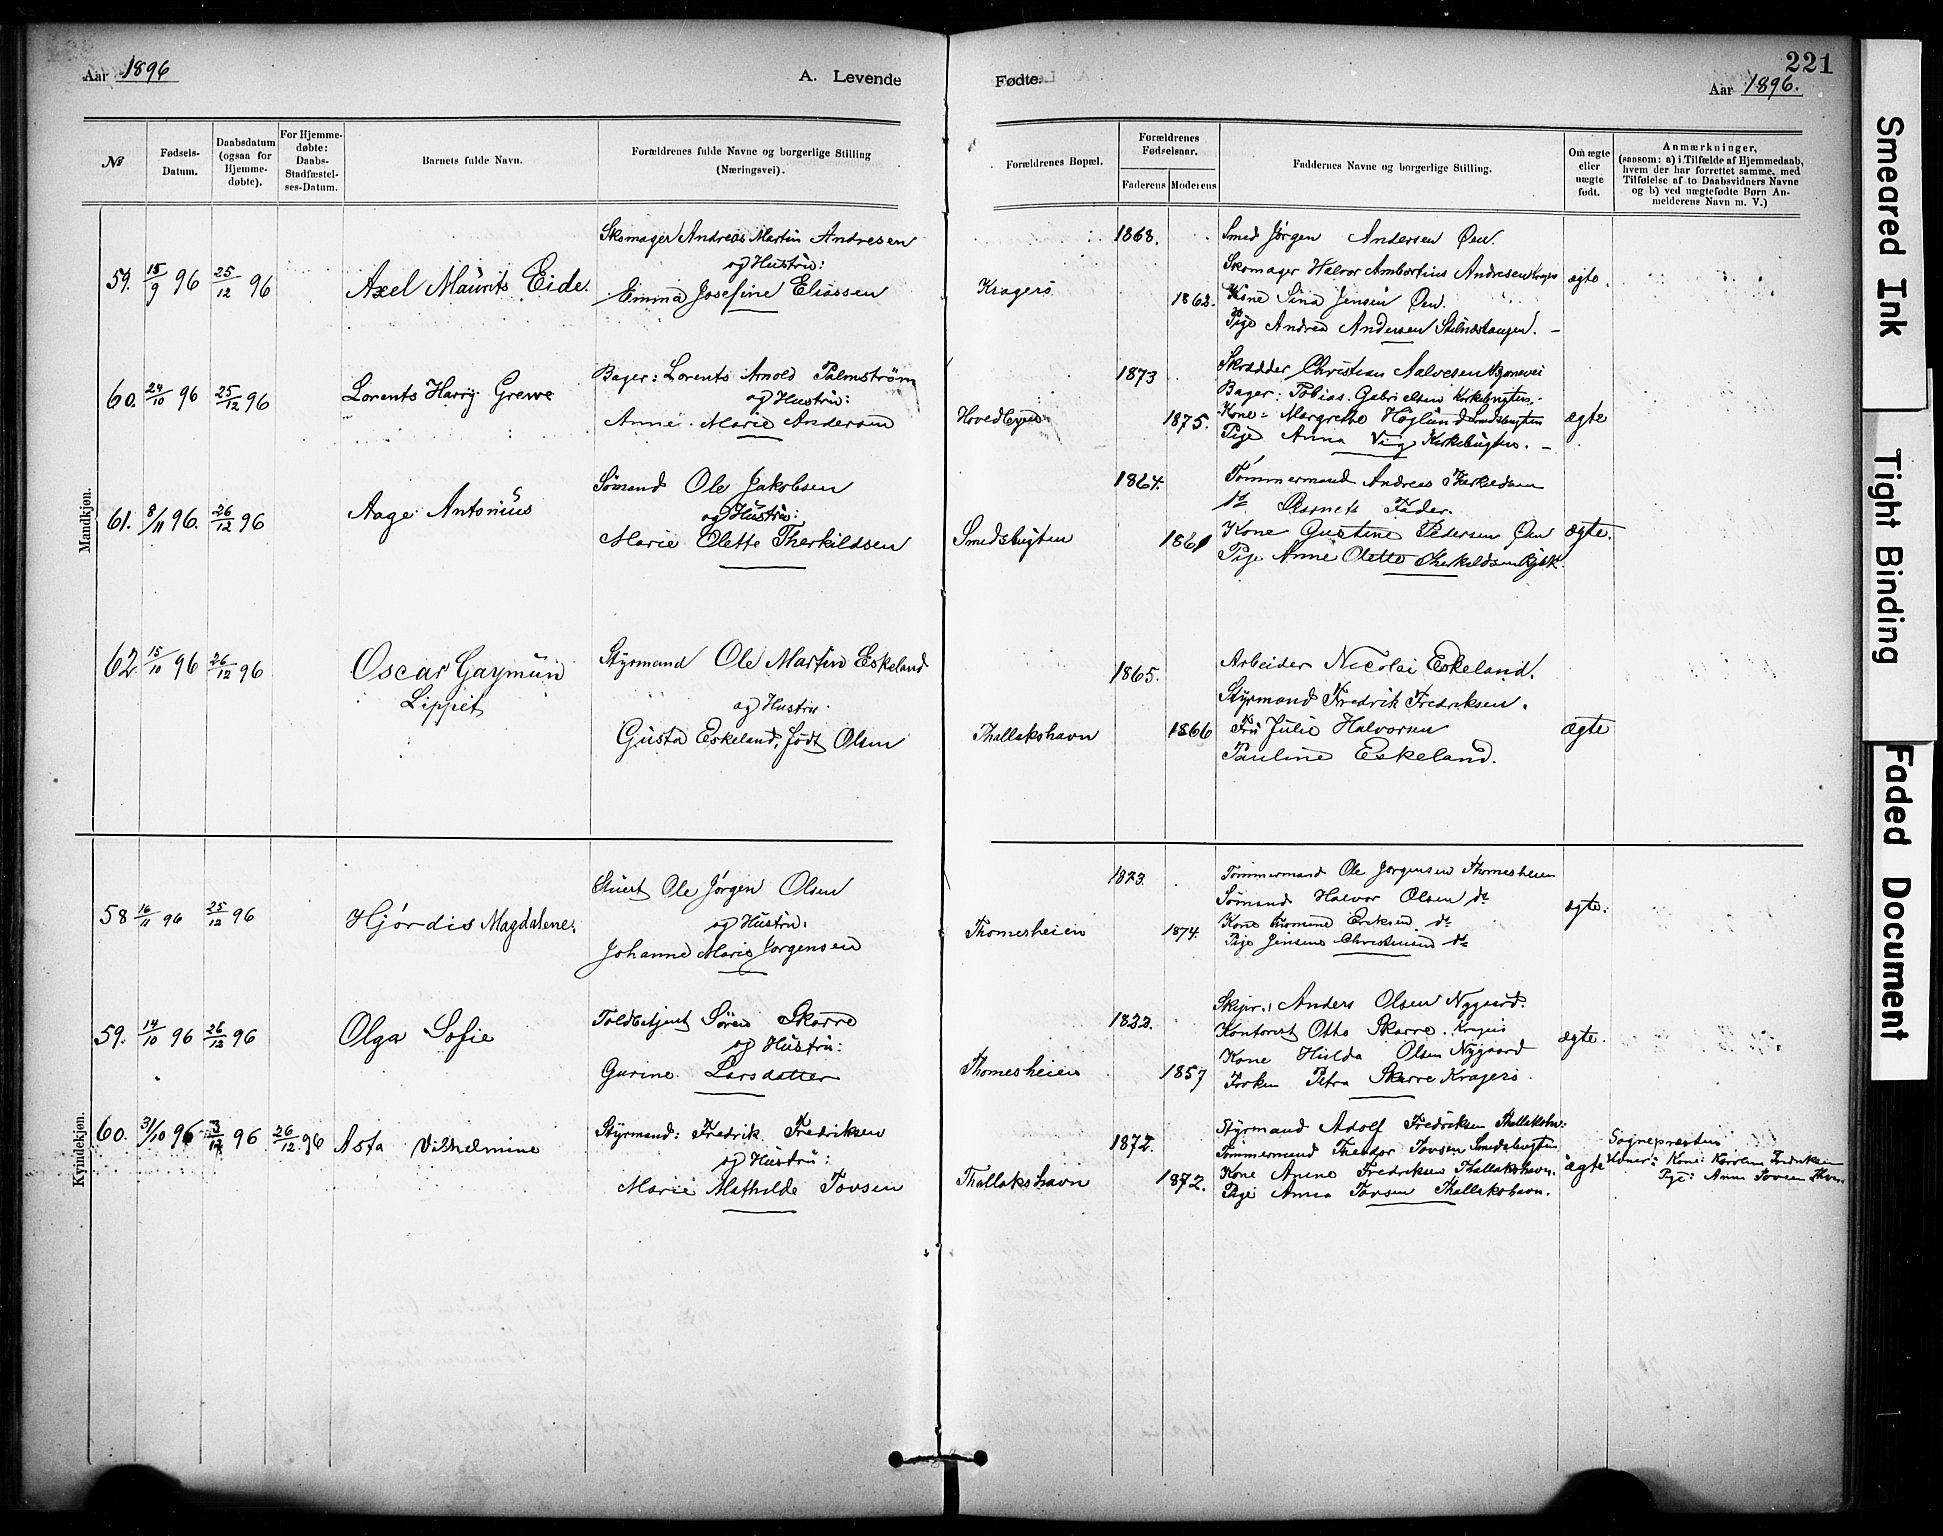 Aar 1896
A. Levende
Fødte.
221
Aar 1896.
№
Fødsels-Datum.
Daabsdatum (ogsaa for Hjemme-døbte).
For Hjemme-døbte: Daabs-Stadfæstel-ses-Datum.
Barnets fulde Navn.
Forældrenes fulde Navne og borgerlige Stilling (Næringsvei).
Forældrenes Bopæl.
Forældrenes Fødselsaar.
Faderens Moderens
Faddernes Navne og borgerlige Stilling.
Om ægte eller uægte født.
Anmærkninger,
(saasom: a) i Tilfælde af Hjemmedaab, hvem der har forrettet samme, med Tilføielse af to Daabsvidners Navne og b) ved uægtefødte Børn An-melderens Navn m. V.)
Mandkjøn.
59. 15/9 96 25/12 96
Axel Maurits Eide.
Skomager Andreas Martin Andresen
og Hustru:
Emma Josefine Eliassen
Kragerø
1868.
1862.
Smed Jørgen Andersen Øen.
Skomager Halvor Ambortius Andresen
Kone Sina Jensen Øen.
Pige Andrea Andersen
ægte.
60. 24/10 96 25/12 96
Lorents Harry Grewe
Bager: Lorents Arnold Palmstrøm
og Hustru:
Anne Marie Andersen
Hovedbyen
1873
1875.
Skrædder Christian Aalvesen
Bager: Tobias Gabrielsen Kirkebugten
Kone: Margrethe Høglund Smedsbugten
Pige Anna Vig Kirkebugten.
ægte
61. 8/11 96. 26/12 96
Aage Antonius
Sømand Ole Jakobsen
og Hustru:
Marie Olette Therkildsen
Smedsbugten
1864.
1861
Tømmermand Andreas
Barnets Fader.
Kone Gustine Pedersen Øen
Pige Anne Olette Therkildsen
ægte.
62. 15/10 96 26/12 96
Oscar Gaymun
Lippit
Styrmand Ole Martin Eskeland
og Hustru
Gusta Eskeland, født Olsen
Thallakshavn
1865.
1866
Arbeider Nicolai Eskeland.
Styrmand Fredrik Fredriksen.
Fru Julie Halvorsen
Pauline Eskeland.
ægte
Kvindekjøn.
58 16/11 96 25/12 96
Hjørdis Magdalene.
Stuert Ole Jørgen Olsen
og Hustru:
Johanne Marie Jørgensen
Thomesheien
1873.
1874.
Tømmermand Ole Jørgensen Thomesheien
Sømand Halvor Olsen do
Kone Thomine Eriksen do
Pige Jensine Christensen do
ægte.
59. 14/10 96 26/12 96
Olga Sofie
Toldbetjent Søren Skarre
og Hustru:
Gurine Larsdatter
Thomesheien
1832.
1857
Skipr. Anders Olsen Nygaard.
Kontorist Otto Skarre. Kragerø
Kone Hilda Olsen Nygaard
Frøken Petra Skarre Kragerø.
ægte.
60. 31/10 96 3/12 96 26/12 96
Asta Vilhelmine
Styrmand: Fredrik Fredriksen
og Hustru:
Marie Mathilde Tovsen
Thallakshavn
1872.
1872.
Styrmand Adolf Fredriksen Thallakshn:
Tømmermand Theodor Tovsen Smedsbugten
Kone Anine Fredriksen Thallakshavn.
Pige Anna Tovsen Thallakshavn.
ægte
Sognepræsten
Kone: Karoline Fredriksen
Pige: Anna Tovsen
Smeared Ink
Tight Binding
Faded Document